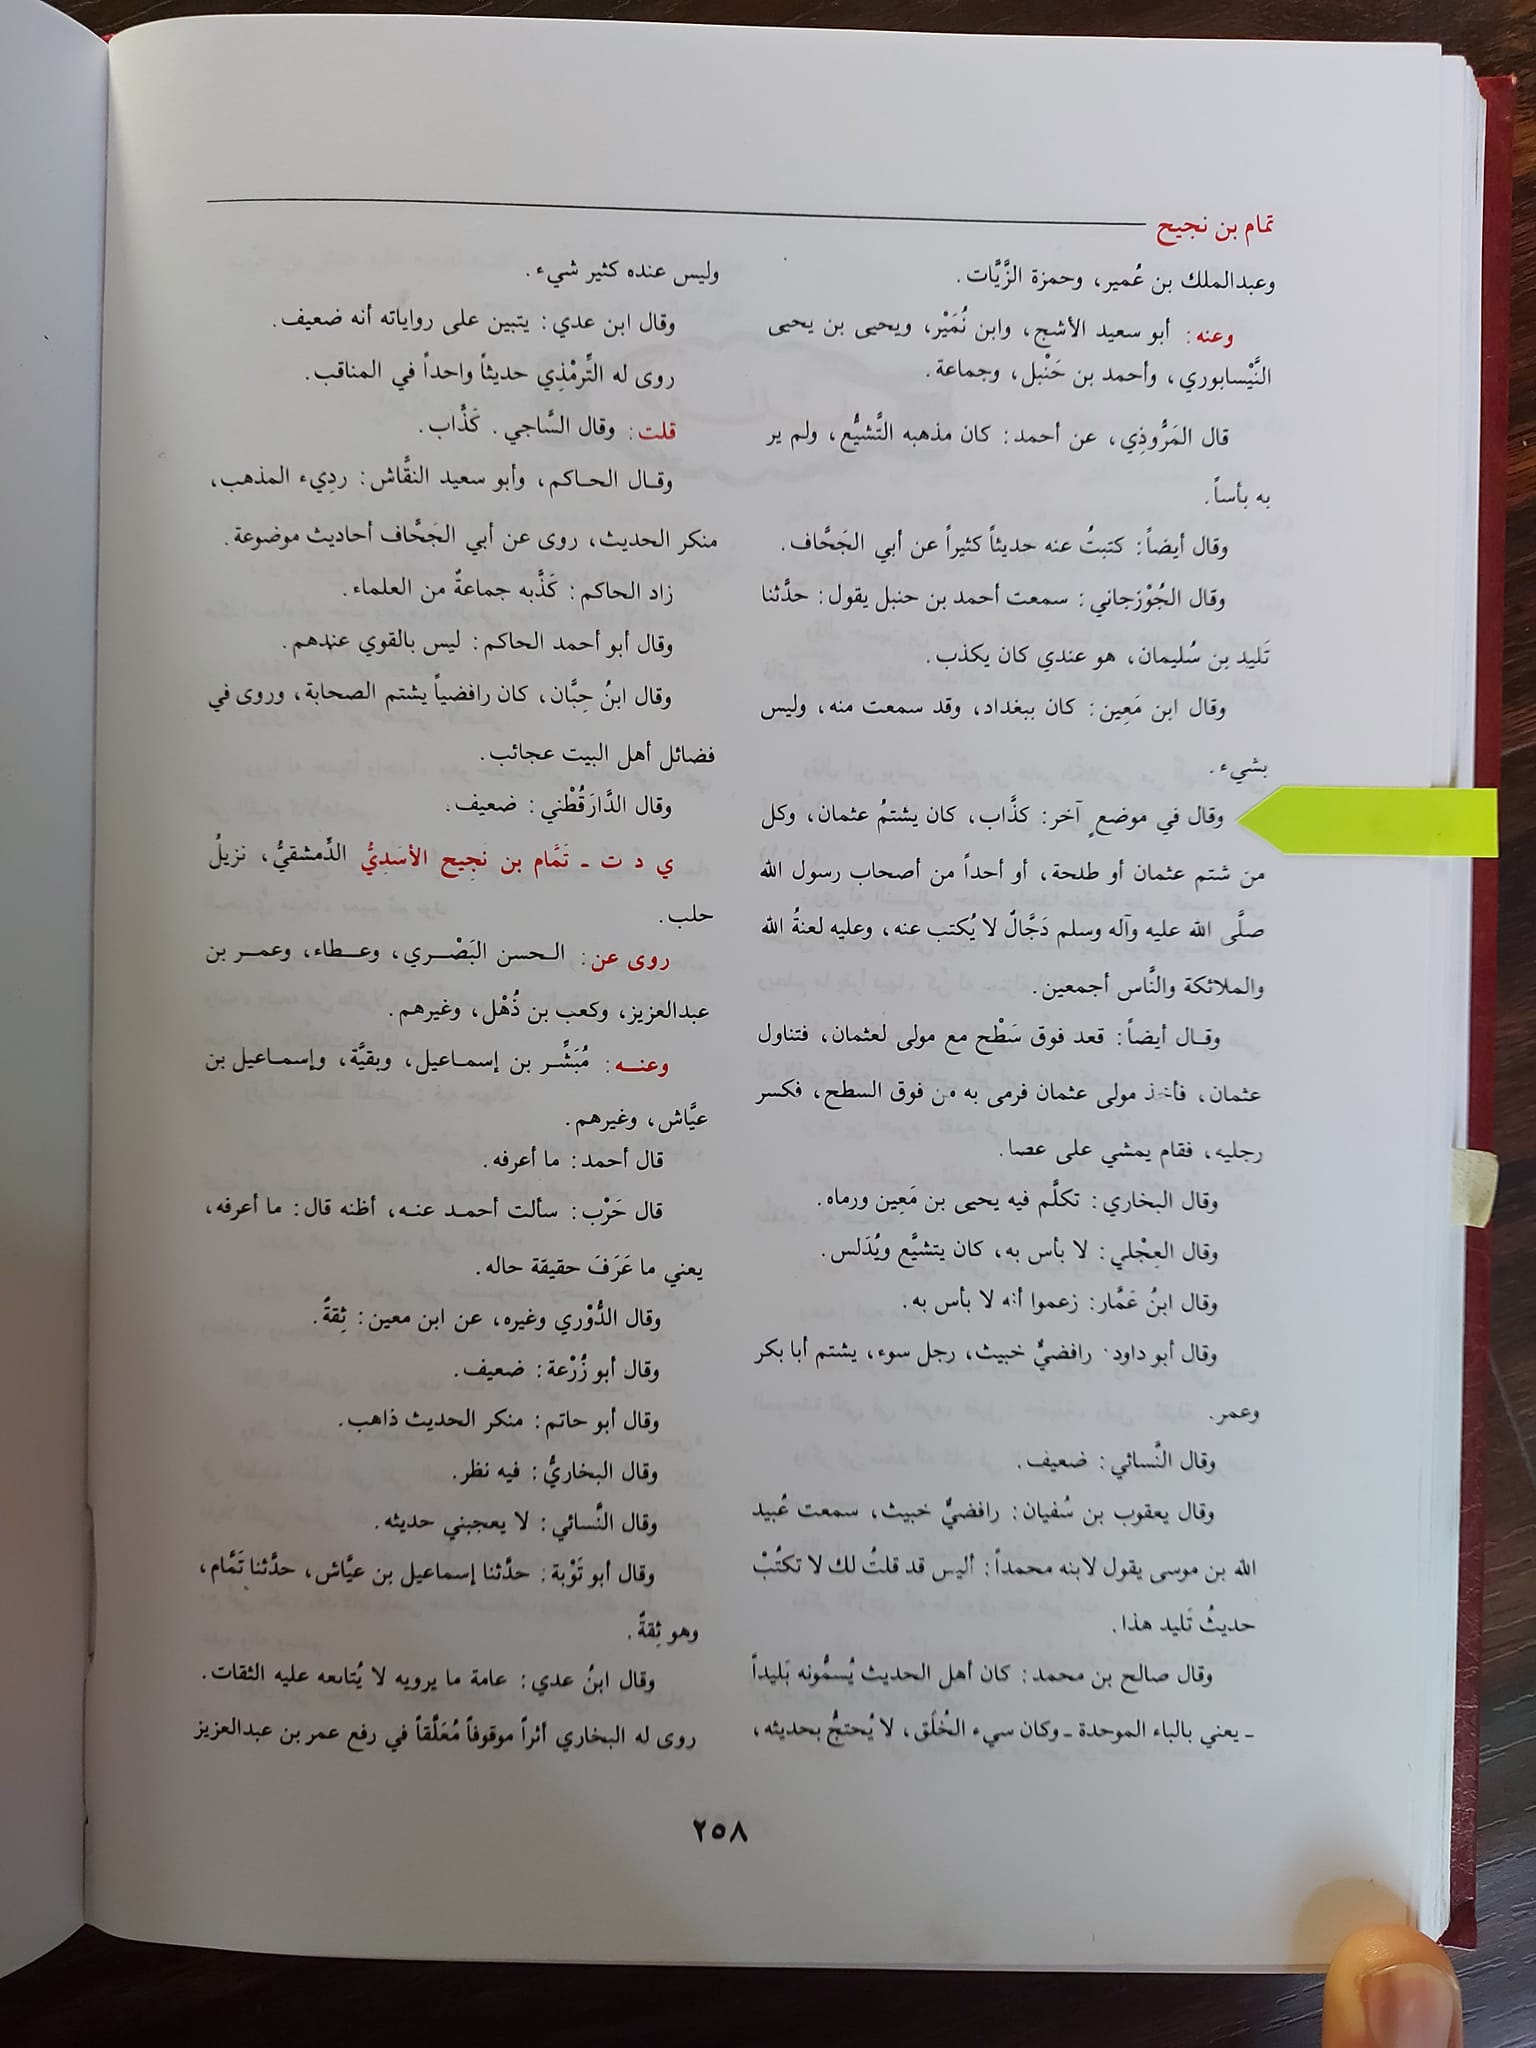 تمام بن نجيح
وعبدالملك بن عُمير، وحمزة الزَّيَّات.
وعنه: أبو سعيد الأشج، وابن نُمَيْر، ويحيى بن يحيى
النَّيْسابوري، وأحمد بن حَنْبل، وجماعة.
قال المَرُّوذِي، عن أحمد: كان مذهبه التَّشيُّع، ولم ير
به بأساً.
وقال أيضاً: كتبتُ عنه حديثاً كثيراً عن أبي الجَحَّاف.
وقال الجُوْزجاني: سمعت أحمد بن حنبل يقول: حدَّثنا
تَليد بن سُليمان، هو عندي كان يكذب.
وقال ابن مَعِين: كان ببغداد، وقد سمعت منه، وليس
بشيء.
وقال في موضعٍ آخر: كذَّاب، كان يشتمُ عثمان، وكل
من شتم عثمان أو طلحة، أو أحداً من أصحاب رسول الله
صلَّى الله عليه وآله وسلم دَجَّالٌ لا يُكتب عنه، وعليه لعنةُ الله
والملائكة والنَّاس أجمعين.
وقال أيضاً: قعد فوق سَطْح مع مولى لعثمان، فتناول
عثمان، فأخذ مولى عثمان فرمى به من فوق السطح، فكسر
رجليه، فقام يمشي على عصا.
وقال البخاري: تكلَّم فيه يحيى بن مَعِين ورماه.
وقال العِجْلي: لا بأس به، كان يتشيَّع ويُدَلس.
وقال ابنُ عَمَّار: زعموا أنه لا بأس به.
وقال أبو داود: رافضيٌّ خبيث، رجل سوء، يشتم أبا بكر
وعمر.
وقال النَّسائي: ضعيف.
وقال يعقوب بن سُفيان: رافضيٌّ خبيث، سمعت عُبيد
الله بن موسى يقول لابنه محمداً: أليس قد قلتُ لك لا تكتُبْ
حديثُ تَليد هذا.
وقال صالح بن محمد: كان أهل الحديث يُسمُّونه بَليداً
ـ يعني بالباء الموحدة ـ وكان سيء الخُلَق، لا يُحتجُّ بحديثه،
وليس عنده كثير شيء.
وقال ابن عدي: يتبين على رواياته أنه ضعيف.
روى له التِّرمْذِي حديثاً واحداً في المناقب.
قلت: وقال السَّاجي. كَذَّاب.
وقال الحاكم، وأبو سعيد النقَّاش: ردِيء المذهب،
منكر الحديث، روى عن أبي الجَحَّاف أحاديث موضوعة.
زاد الحاكم: كَذَّبه جماعةٌ من العلماء.
وقال أبو أحمد الحاكم: ليس بالقوي عندهم.
وقال ابنُ حِبَّان، كان رافضياً يشتم الصحابة، وروى في
فضائل أهل البيت عجائب.
وقال الدَّارَقُطْني: ضعيف.
ي د ت ـ تَمَّام بن نَجِيح الأسَدِيُّ الدِّمشقيُّ، نزيلُ
حلب.
روى عن: الحسن البَصْري، وعطاء، وعمر بن
عبدالعزيز، وكعب بن ذُهْل، وغيرهم.
وعنه: مُبَشِّر بن إسماعيل، وبقيَّة، وإسماعيل بن
عيَّاش، وغيرهم.
قال أحمد: ما أعرفه.
قال حَرْب: سألت أحمد عنه، أظنه قال: ما أعرفه،
يعني ما عَرَفَ حقيقة حاله.
وقال الدُّوْري وغيره، عن ابن معين: ثِقةٌ.
وقال أبو زُرْعة: ضعيف.
وقال أبو حاتم: منكر الحديث ذاهب.
وقال البخاريُّ: فيه نظر.
وقال النَّسائي: لا يعجبني حديثه.
وقال أبو تَوْبة: حدَّثنا إسماعيل بن عيَّاش، حدَّثنا تَمَّام،
وهو ثِقةٌ.
وقال ابنُ عدي: عامة ما يرويه لا يُتابعه عليه الثقات.
روى له البخاري أثراً موقوفاً مُعَلَّقاً في رفع عمر بن عبدالعزيز
٢٥٨